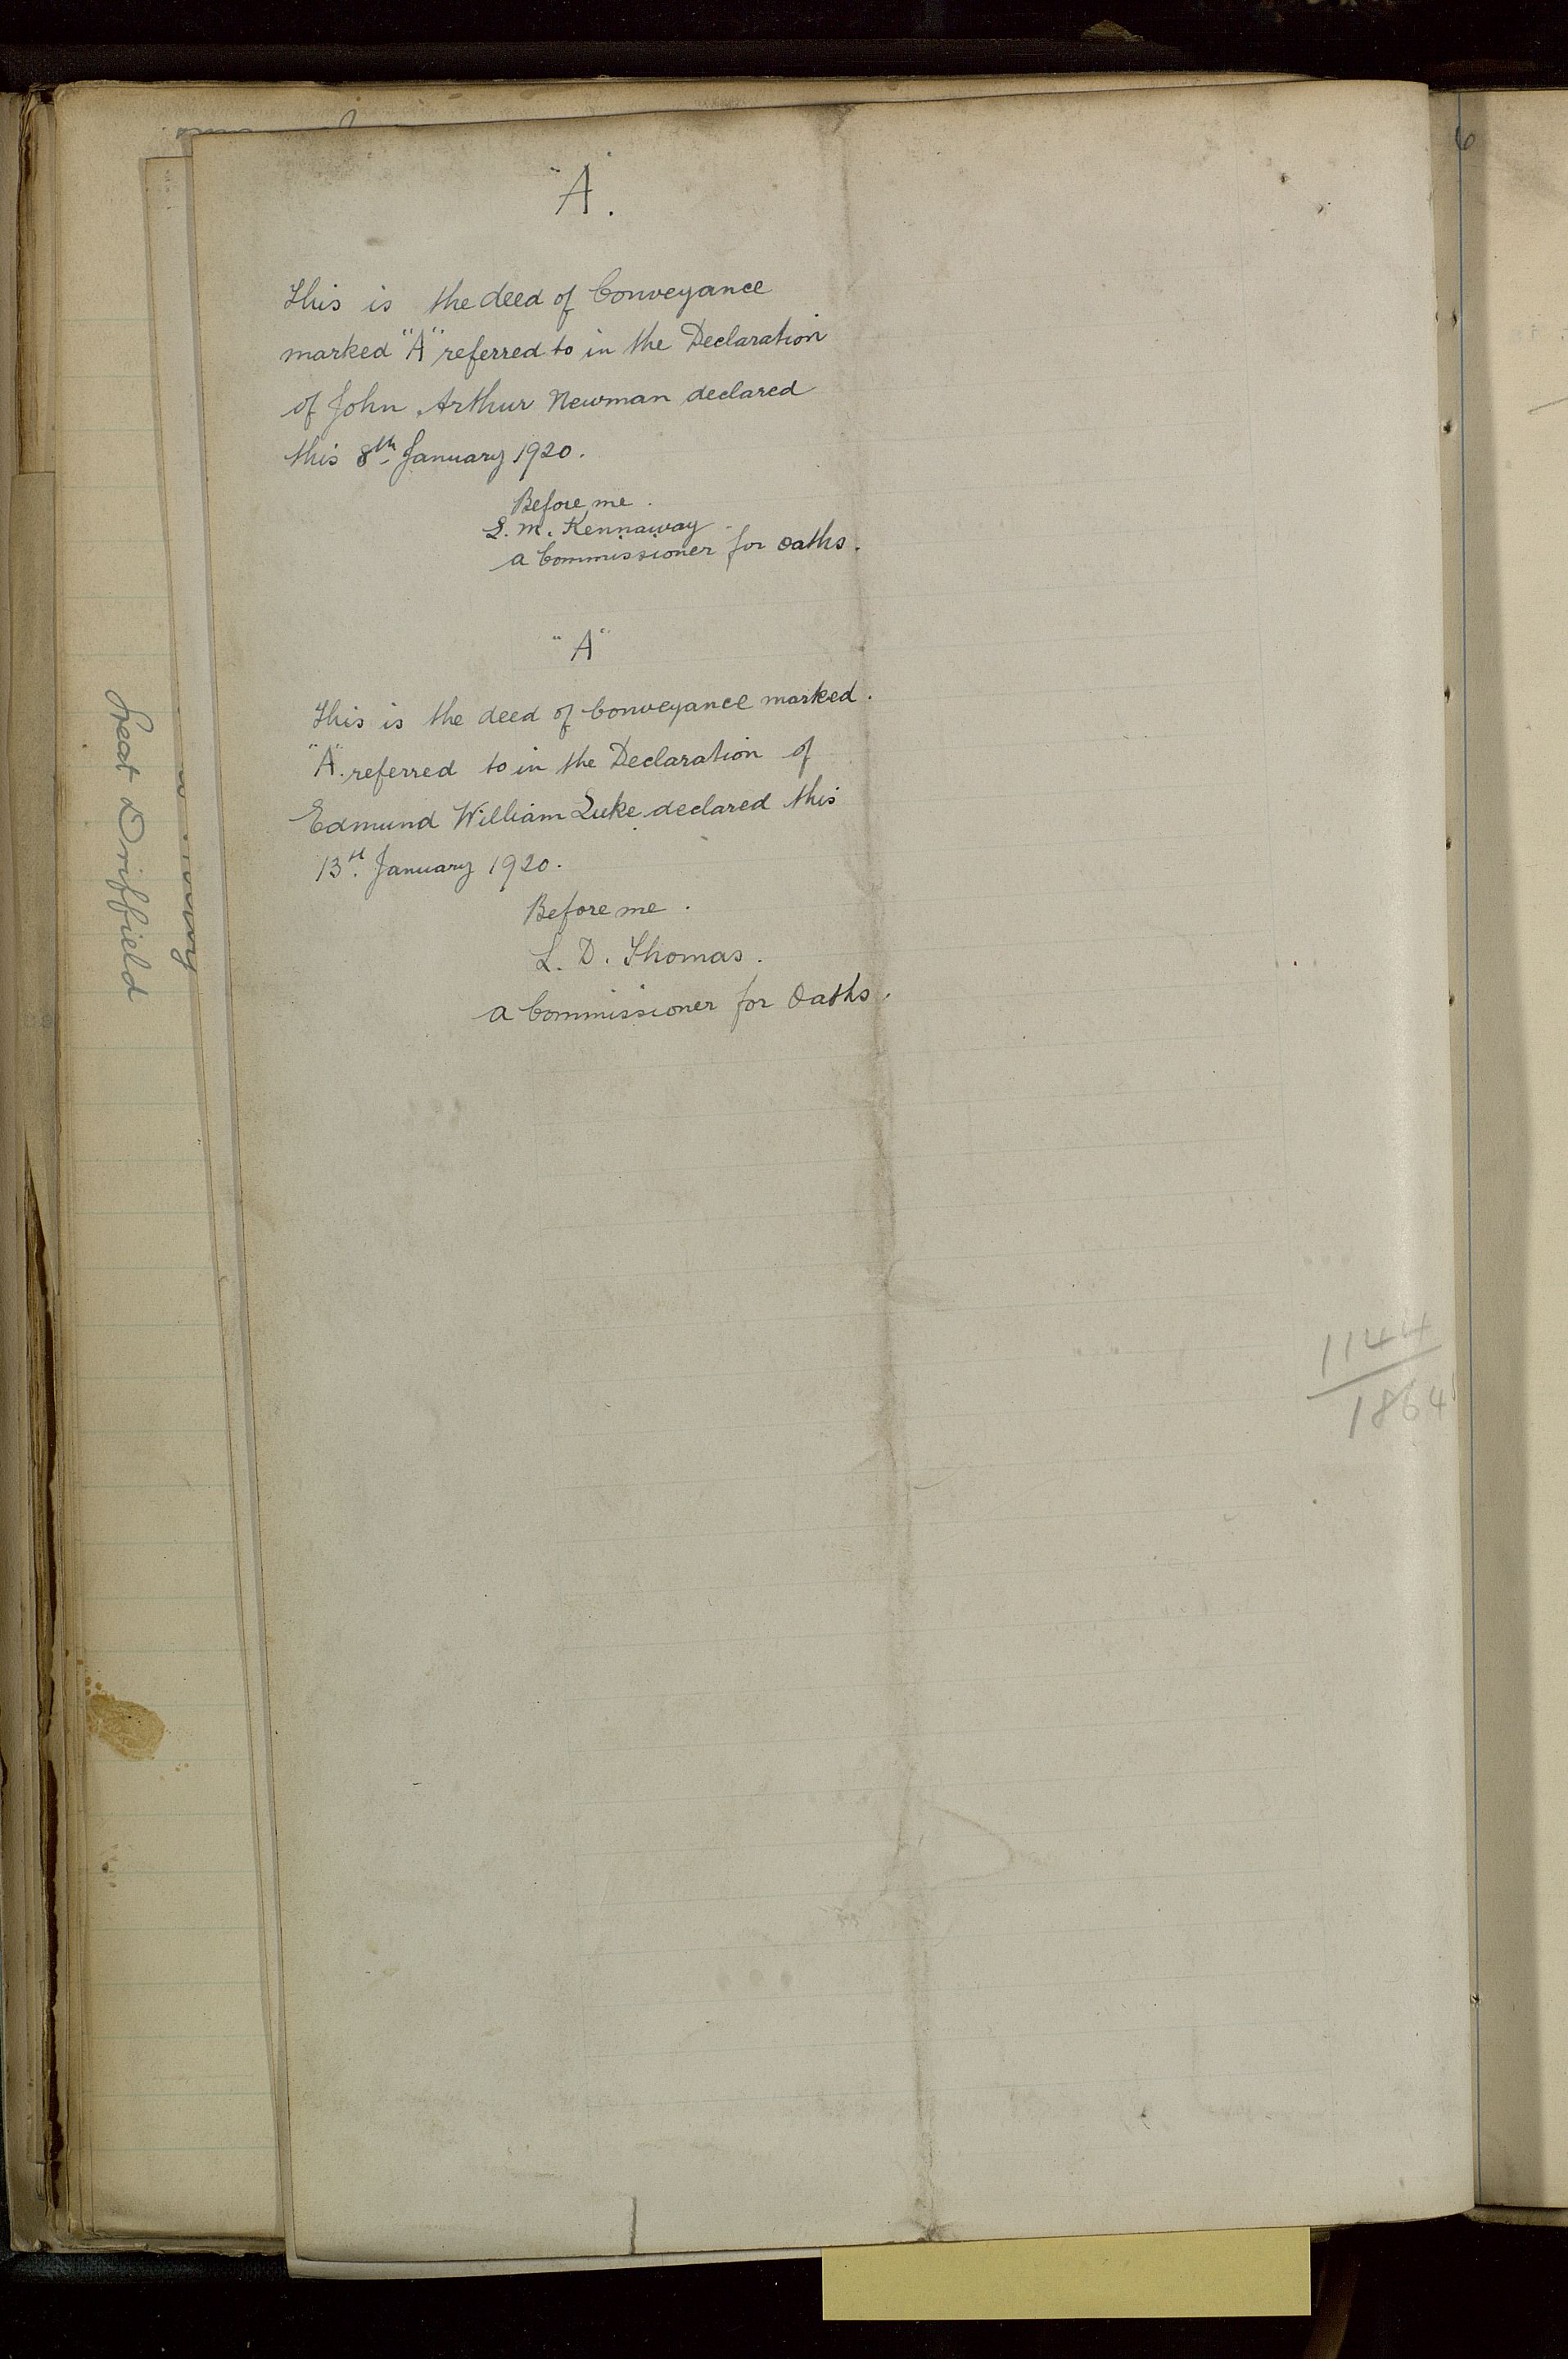 "A".
This is the deed of Conveyance
marked "A" referred to in the Declaration
of John Arthur Newman declared
this 8th January 1920.
Before me.
L. M. Kennaway
a Commissioner for Oaths.
"A"
This is the deed of Conveyance marked.
"A". referred to in the Declaration of
Edmund William Luke declared this
13th January 1920.
Before me.
L. D. Thomas.
a Commissioner for Oaths.
1144
1864
Great Driffield